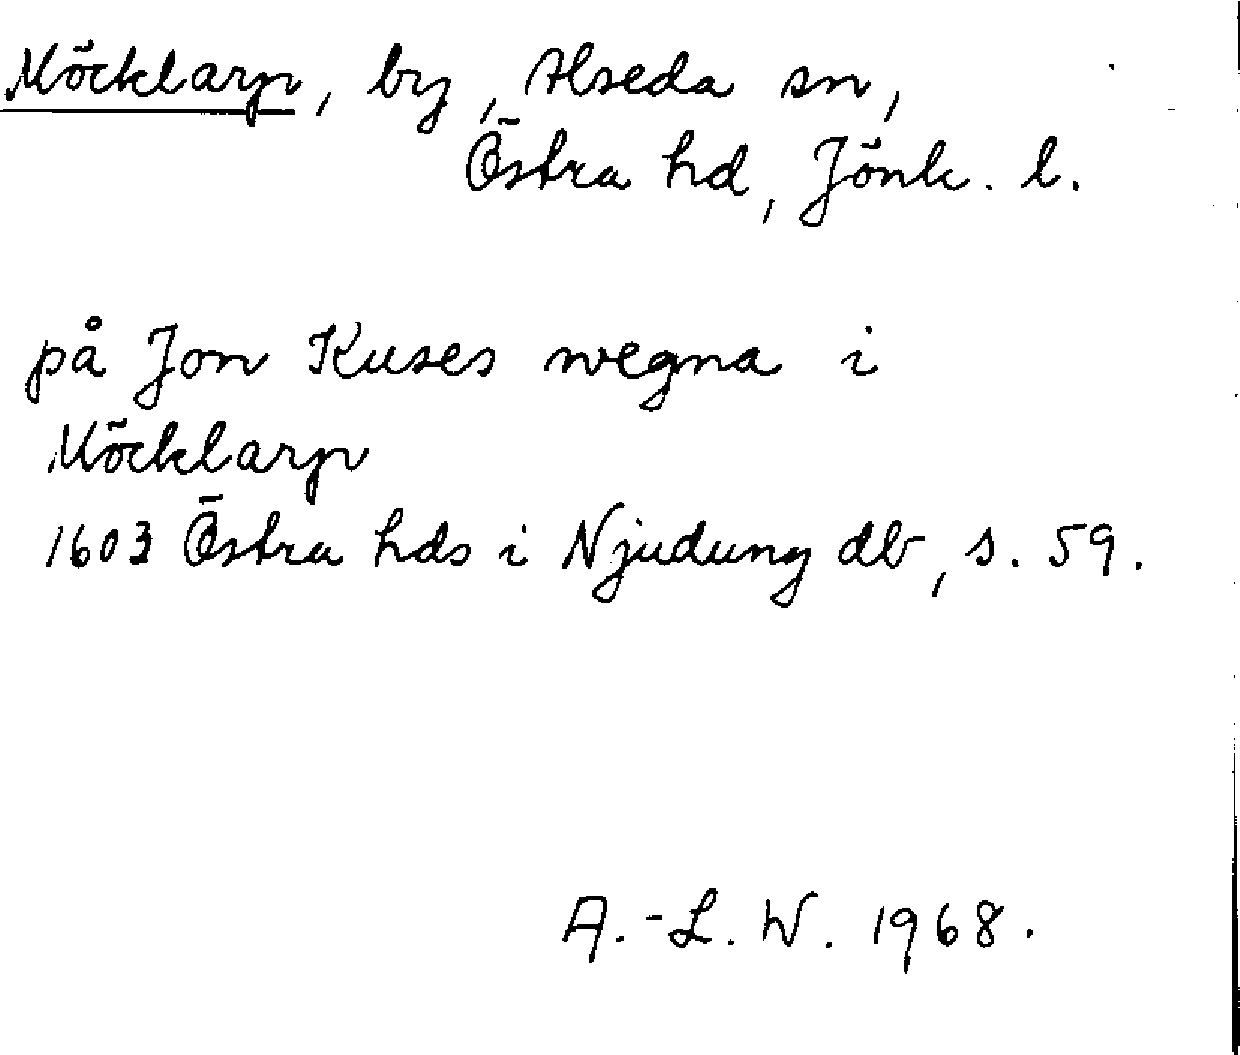 Möcklarp, by, Alseda sn,
Östra hd, Jönk. l.
på Jon Kuses wegna i
Möcklarp
1603 Östra hds i Njudung db, s. 59.
A.-L. W. 1968.